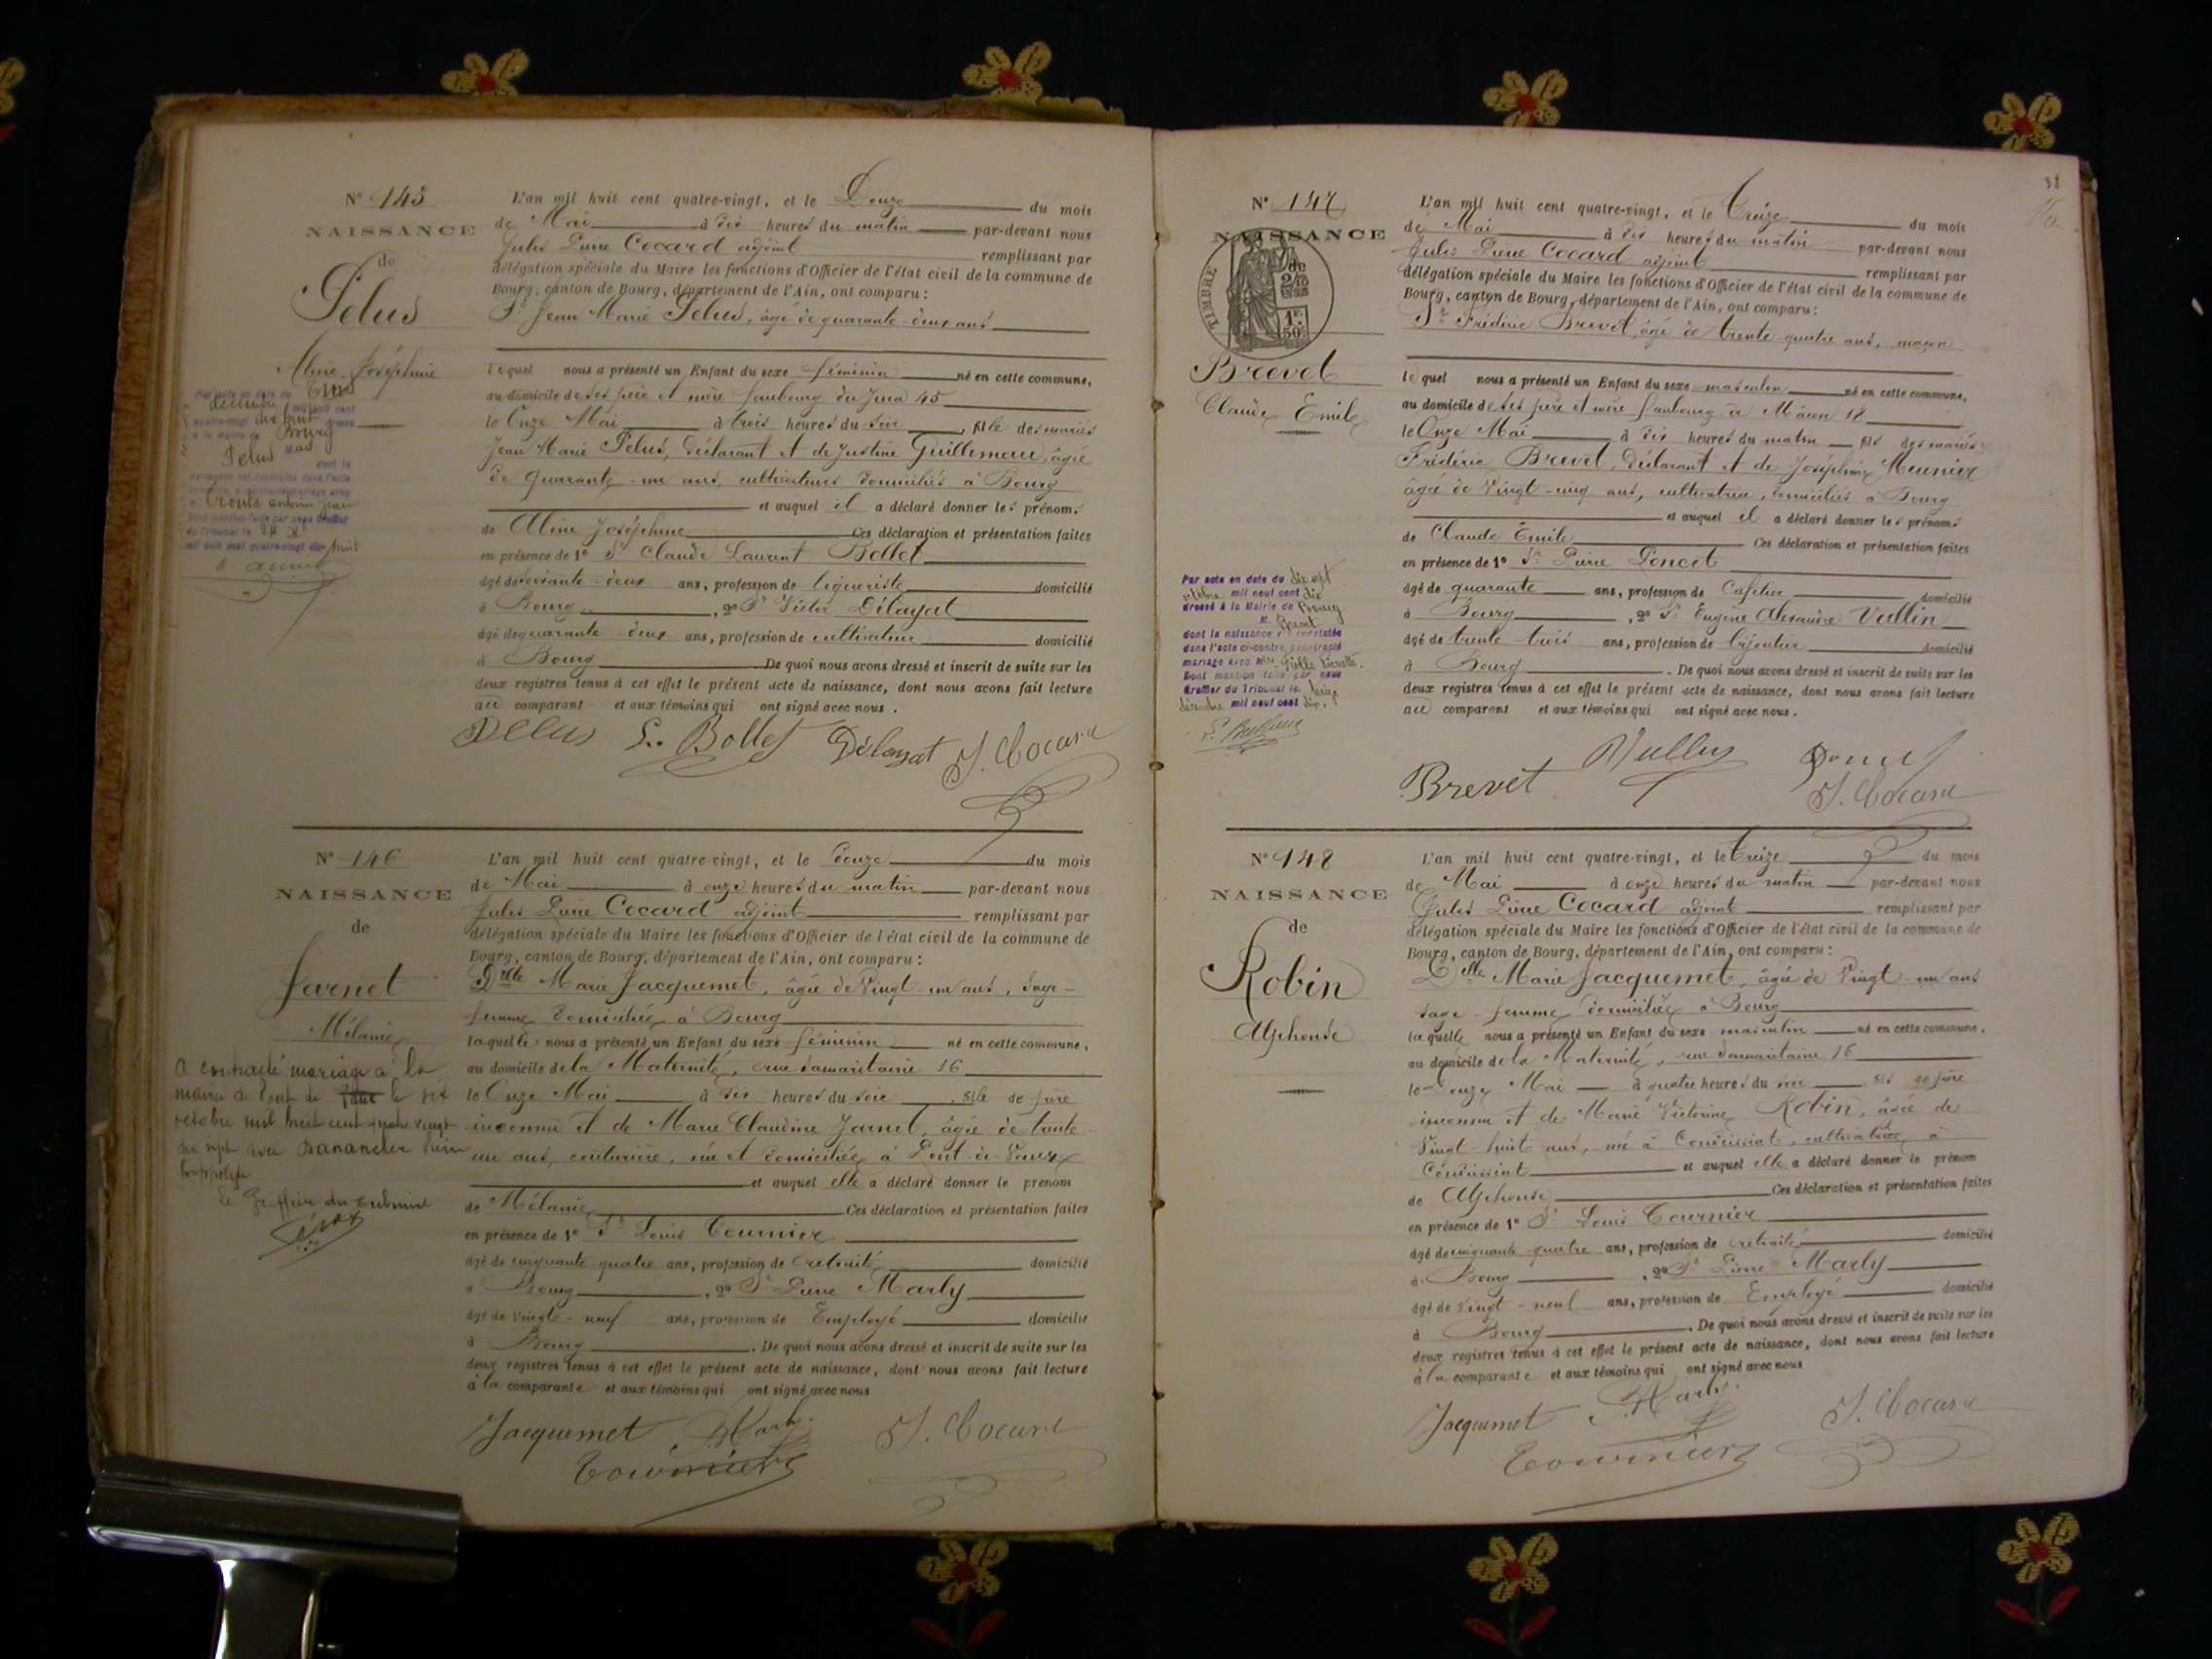 N° 145
NAISSANCE
de
Pelus
Aline Joséphine
L'an mil huit cent quatre-vingt, et le Douze du mois
de Mai à dix heures du matin par-devant nous
Jules Pierre Cocard adjoint remplissant par
délégation spéciale du Maire les fonctions d'Officier de l'état civil de la commune de
Bourg, canton de Bourg, département de l'Ain, ont comparu :
Sr Jean Marie Pelus, âgé de quarante-deux ans
lequel nous a présenté un Enfant du sexe féminin né en cette commune,
au domicile de ses père et mère faubourg du Jura 45
le Onze Mai à trois heures du soir, fille des mariés
Jean Marie Pelus, déclarant et de Justine Guillemau, âgée
de quarante-un ans, cultivateurs domiciliés à Bourg
et auquel il a déclaré donner les prénoms
de Aline Joséphine Ces déclaration et présentation faites
en présence de 1° Sr Claude Laurent Bollet
âgé de soixante-deux ans, profession de liquoriste domicilié
à Bourg, 2° Sr Victor Délayat
âgé de quarante-deux ans, profession de cultivateur domicilié
à Bourg De quoi nous avons dressé et inscrit de suite sur les
deux registres tenus à cet effet le présent acte de naissance, dont nous avons fait lecture
au comparant et aux témoins qui ont signé avec nous.
Pelus L. Bollet Délayat J. Cocard
N° 146
NAISSANCE
de
Jarnet
Mélanie
a contracté mariage à la
mairie a Pont de le six
octobre mil huit cent quatre vingt
dix sept avec Banancher
Le Greffier du tribunal
L'an mil huit cent quatre-vingt, et le Douze du mois
de Mai à onze heures du matin par-devant nous
Jules Pierre Cocard adjoint remplissant par
délégation spéciale du Maire les fonctions d'Officier de l'état civil de la commune de
Bourg, canton de Bourg, département de l'Ain, ont comparu :
Delle Marie Jacquemet, âgée de Vingt-un ans, sage-
femme domiciliée à Bourg
laquelle nous a présenté un Enfant du sexe féminin né en cette commune,
au domicile de la Maternité, rue Samaritaine 16
le Onze Mai à dix heures du soir, fille de père
inconnu et de Marie Claudine Jarnet, âgée de trente-
un ans, couturière, née et domiciliée à Pont-de-Vaux
et auquel elle a déclaré donner le prénom
de Mélanie Ces déclaration et présentation faites
en présence de 1° Sr Louis Tournier
âgé de cinquante-quatre ans, profession de retraité domicilié
à Bourg, 2° Sr Pierre Marly
âgé de vingt-neuf ans, profession de Employé domicilié
à Bourg. De quoi nous avons dressé et inscrit de suite sur les
deux registres tenus à cet effet le présent acte de naissance, dont nous avons fait lecture
à la comparante et aux témoins qui ont signé avec nous
Jacquemet P. Marly J. Cocard
Tournier
38
N° 147
NAISSANCE
de
TIMBRE
Brevet
Claude Emile
Par acte en date du dix sept
octobre mil neuf cent dix
dressé à la Mairie de Bourg
M. Brevet
dont la naissance est constatée
dans l'acte ci-contre a contracté
mariage avec Mlle
Dont mention faite par nous
Greffier du Tribunal le
décembre mil neuf cent dix.
L'an mil huit cent quatre-vingt, et le Treize du mois
de Mai à dix heures du matin par-devant nous
Jules Pierre Cocard adjoint remplissant par
délégation spéciale du Maire les fonctions d'Officier de l'état civil de la commune de
Bourg, canton de Bourg, département de l'Ain, ont comparu :
Sr Frédéric Brevet, âgé de trente-quatre ans, maçon
lequel nous a présenté un Enfant du sexe masculin né en cette commune,
au domicile de ses père et mère faubourg de Mâcon 18
le Onze Mai à dix heures du matin fils des mariés
Frédéric Brevet, déclarant et de Joséphine Meunier
âgée de Vingt-cinq ans, cultivatrice, domiciliés à Bourg
et auquel il a déclaré donner les prénoms
de Claude Emile Ces déclaration et présentation faites
en présence de 1° Sr Pierre Poncet
âgé de quarante ans, profession de Cafetier domicilié
à Bourg, 2° Sr Eugène Alexandre Vullin
âgé de trente-trois ans, profession de bijoutier domicilié
à Bourg. De quoi nous avons dressé et inscrit de suite sur les
deux registres tenus à cet effet le présent acte de naissance, dont nous avons fait lecture
au comparant et aux témoins qui ont signé avec nous.
Brevet Vullin Poncet
J. Cocard
N° 148
NAISSANCE
de
Robin
Alphonse
L'an mil huit cent quatre-vingt, et le Treize du mois
de Mai à onze heures du matin par-devant nous
Jules Pierre Cocard adjoint remplissant par
délégation spéciale du Maire les fonctions d'Officier de l'état civil de la commune de
Bourg, canton de Bourg, département de l'Ain, ont comparu :
Delle Marie Jacquemet, âgée de Vingt-un ans
sage-femme domiciliée à Bourg
laquelle nous a présenté un Enfant du sexe masculin né en cette commune,
au domicile de la Maternité, rue Samaritaine 16
le Douze Mai à quatre heures du soir fils de père
inconnu et de Marie Victorine Robin, âgée de
Vingt-huit ans, née à Condeissiat, cultivatrice à
Condeissiat et auquel elle a déclaré donner le prénom
de Alphonse Ces déclaration et présentation faites
en présence de 1° Sr Louis Tournier
âgé de cinquante-quatre ans, profession de retraité domicilié
à Bourg, 2° Sr Pierre Marly
âgé de vingt-neuf ans, profession de Employé domicilié
à Bourg. De quoi nous avons dressé et inscrit de suite sur les
deux registres tenus à cet effet le présent acte de naissance, dont nous avons fait lecture
à la comparante et aux témoins qui ont signé avec nous
Jacquemet P. Marly J. Cocard
Tournier